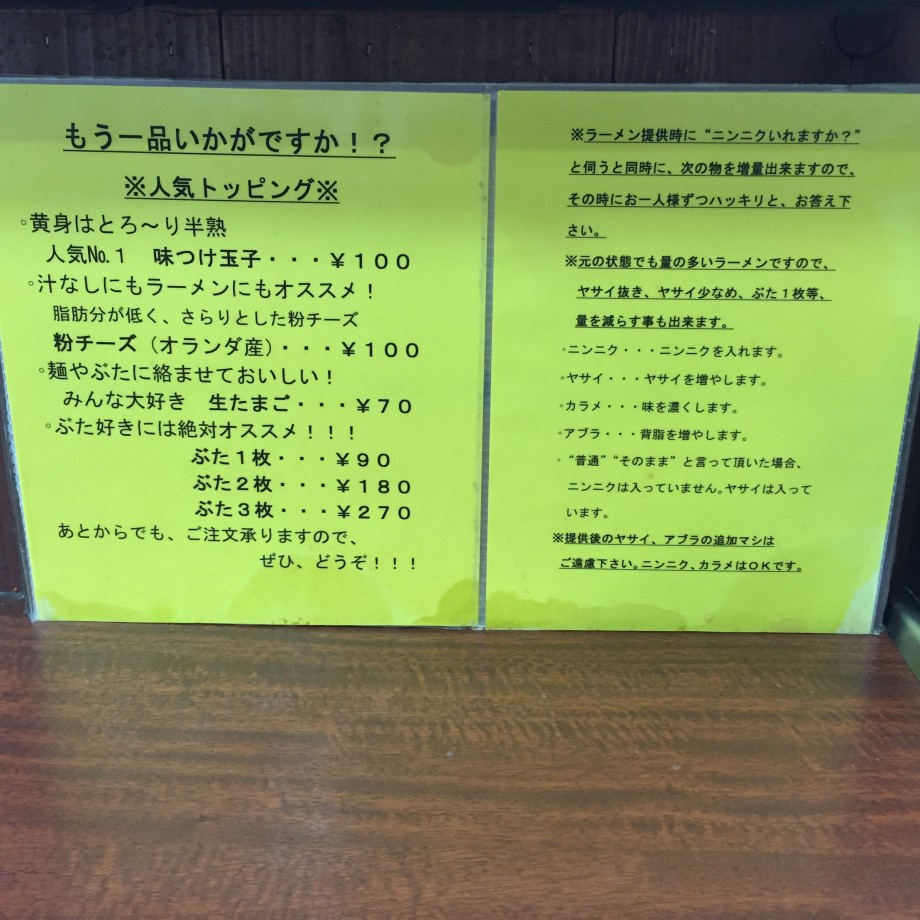 もう一品いかがですか！？
※人気トッピング※
◦黄身はとろ～り半熟
人気№１　味つけ玉子・・・￥１００
◦汁なしにもラーメンにもオススメ！
脂肪分が低く、さらりとした粉チーズ
粉チーズ（オランダ産）・・・￥１００
◦麺やぶたに絡ませておいしい！
みんな大好き　生たまご・・・￥７０
◦ぶた好きには絶対オススメ！！！
ぶた１枚・・・￥９０
ぶた２枚・・・￥１８０
ぶた３枚・・・￥２７０
あとからでも、ご注文承りますので、
ぜひ、どうぞ！！！
※ラーメン提供時に“ニンニクいれますか？”
と伺うと同時に、次の物を増量出来ますので、
その時にお一人様ずつハッキリと、お答え下
さい。
※元の状態でも量の多いラーメンですので、
ヤサイ抜き、ヤサイ少なめ、ぶた１枚等、
量を減らす事も出来ます。
◦ニンニク・・・ニンニクを入れます。
◦ヤサイ・・・ヤサイを増やします。
◦カラメ・・・味を濃くします。
◦アブラ・・・背脂を増やします。
◦“普通”“そのまま”と言って頂いた場合、
ニンニクは入っていません。ヤサイは入って
います。
※提供後のヤサイ、アブラの追加マシは
ご遠慮下さい。ニンニク、カラメはＯＫです。